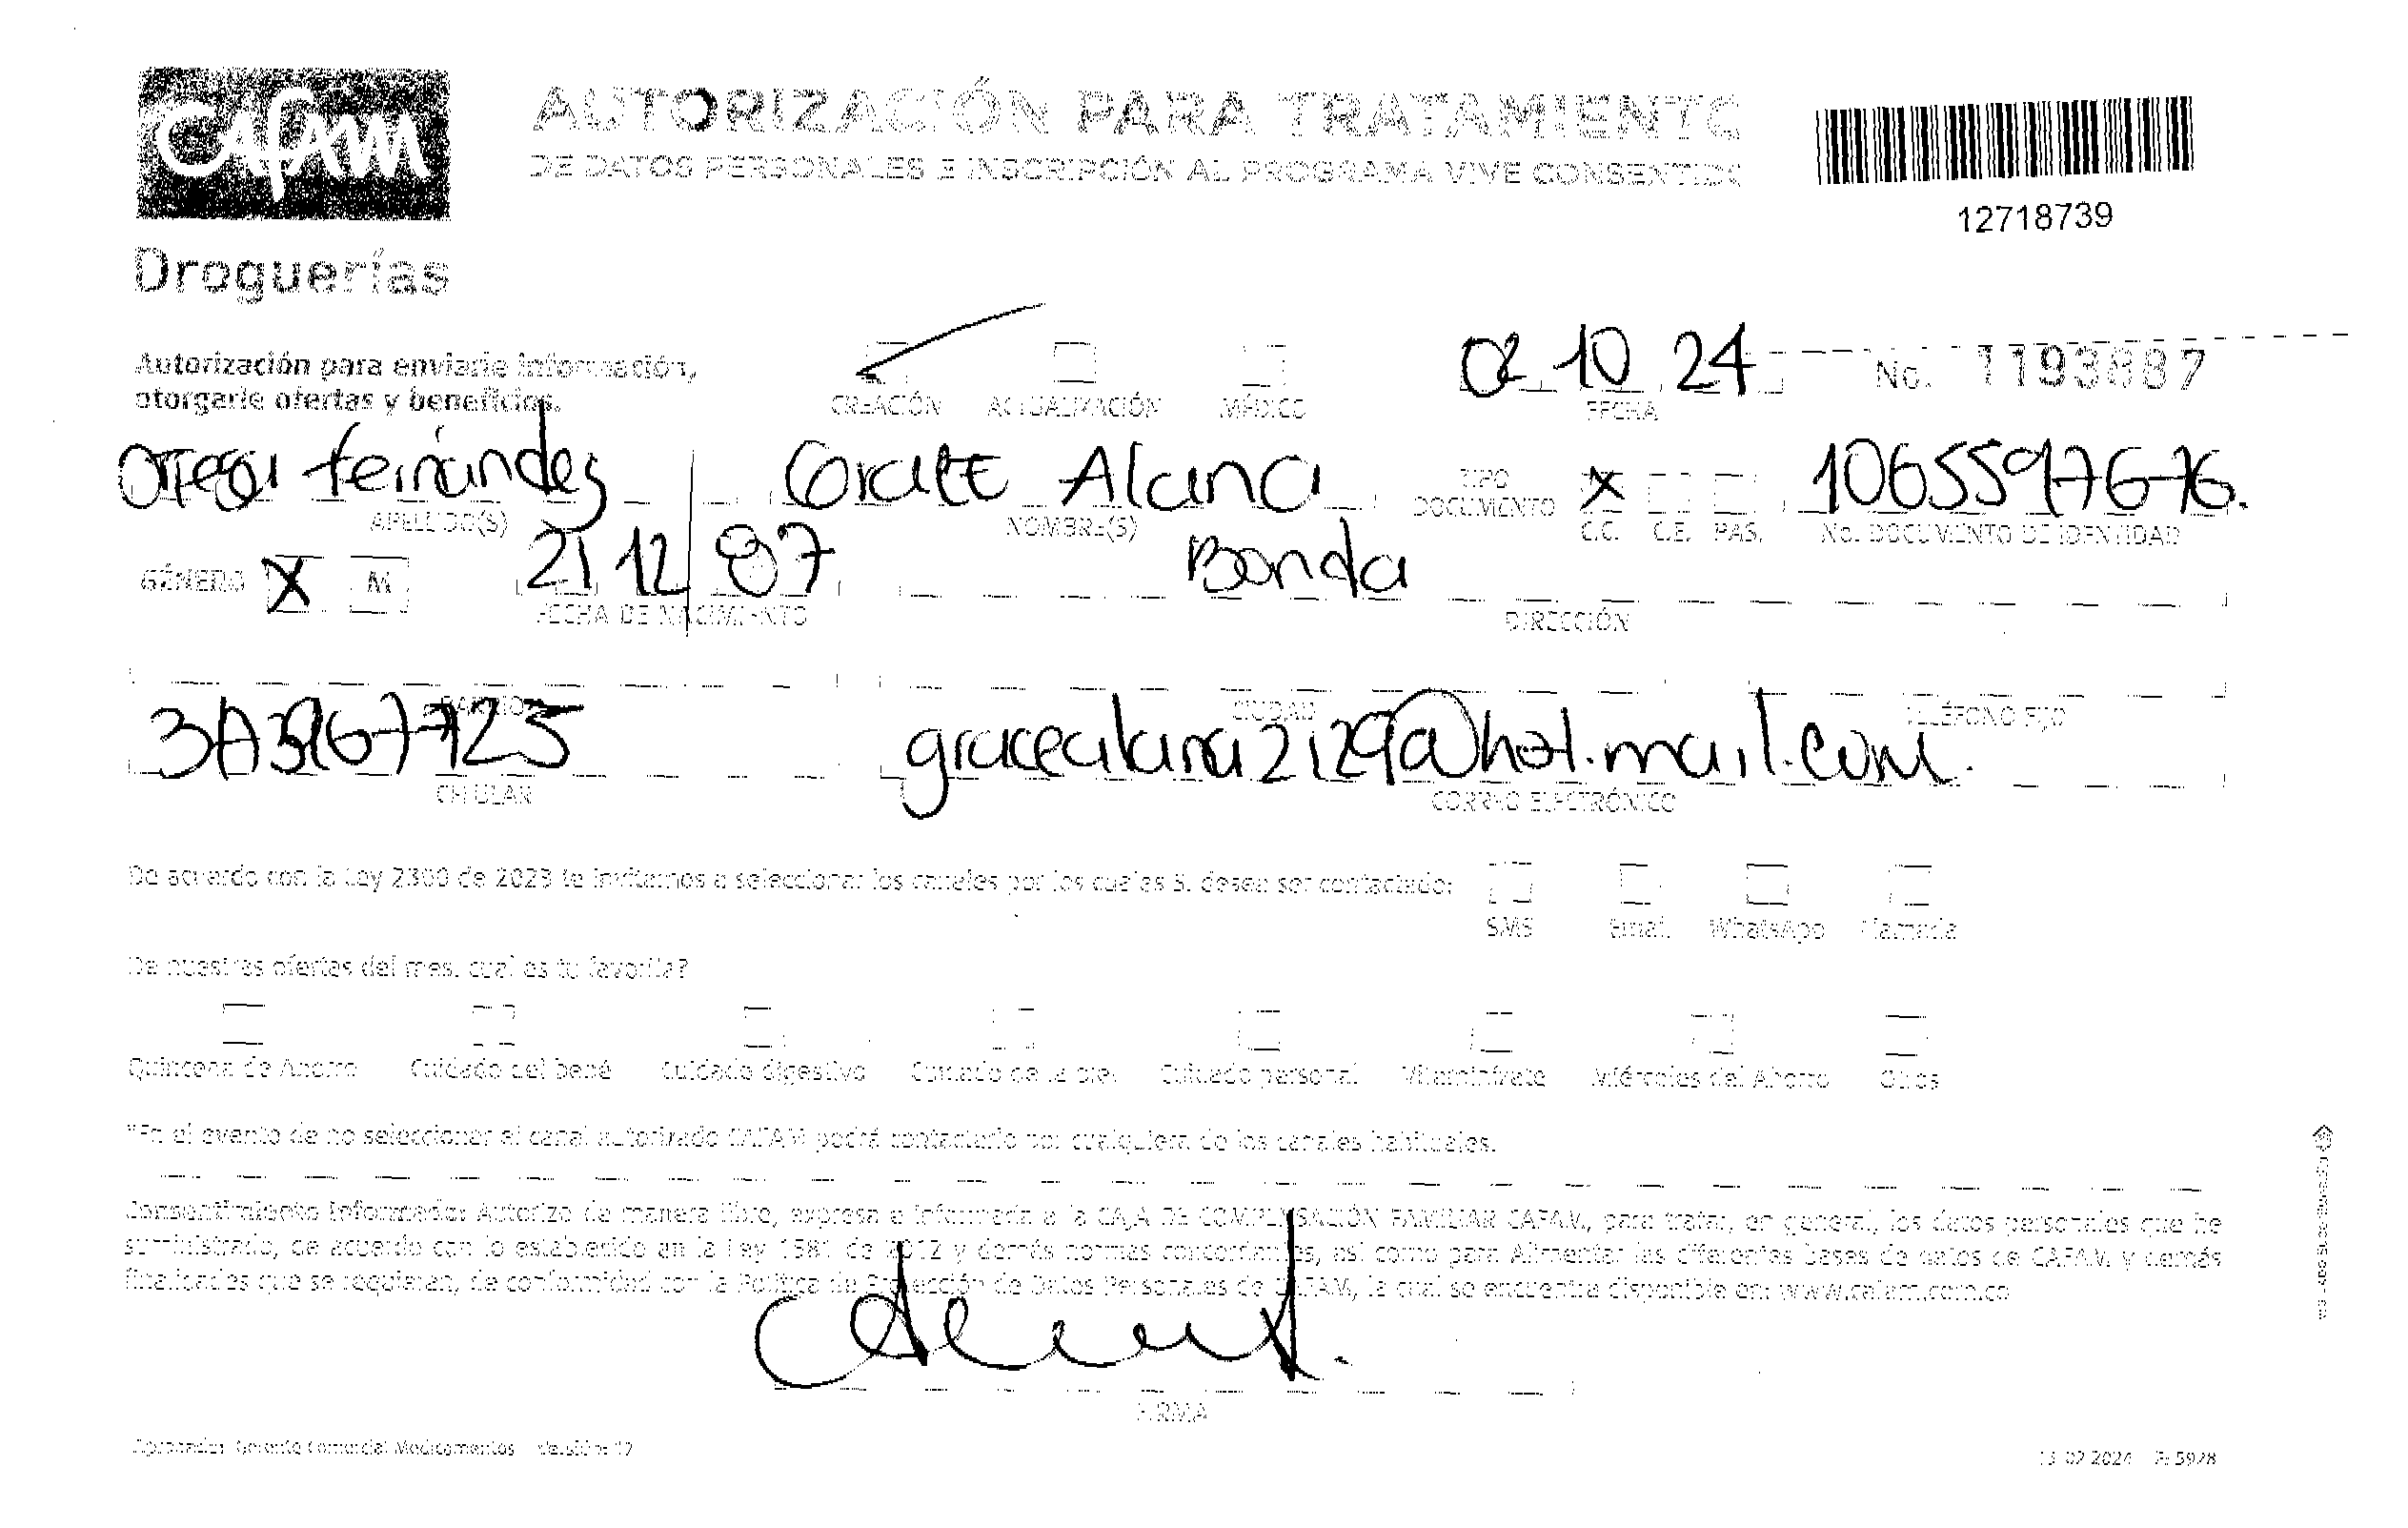 Cafam
Droguerías
AUTORIZACIÓN PARA TRATAMIENTO
DE DATOS PERSONALES E INSCRIPCIÓN AL PROGRAMA VIVE CONSENTIDO
12718739
Autorización para enviarle información,
otorgarle ofertas y beneficios.
CREACIÓN ACTUALIZACIÓN MÉDICO
02 10 24
FECHA
No. 1193687
Ortega fernández
APELLIDO(S)
Alana
NOMBRE(S)
TIPO
DOCUMENTO
X
C.C. C.E. PAS.
1065597676.
No. DOCUMENTO DE IDENTIDAD
GÉNERO X M
21 12 87
FECHA DE NACIMIENTO
Bonda
DIRECCIÓN
BARRIO
CIUDAD
TELÉFONO FIJO
CELULAR
gracealana2129@hot.mail.com.
CORREO ELECTRÓNICO
De acuerdo con la Ley 2300 de 2023 te invitamos a seleccionar los canales por los cuales S. desea ser contactado:
SMS Email WhatsApp Llamada
De nuestras ofertas del mes, cual es tu favorita?
Quincena de Ahorro Cuidado del bebé Cuidado digestivo Cuidado de la piel Cuidado personal Vitaminízate Miércoles del Ahorro Otros
*En el evento de no seleccionar el canal autorizado CAFAM podrá contactarlo por cualquiera de los canales habituales.
Consentimiento Informado: Autorizo de manera libre, expresa e informada a la CAJA DE COMPENSACIÓN FAMILIAR CAFAM, para tratar, en general, los datos personales que he
suministrado, de acuerdo con lo establecido en la Ley 1581 de 2012 y demás normas concordantes, así como para Alimentar las diferentes bases de datos de CAFAM y demás
finalidades que se requieran, de conformidad con la Política de Protección de Datos Personales de CAFAM, la cual se encuentra disponible en: www.cafam.com.co
FIRMA
Aprobado: Gerente Comercial Medicamentos Versión: 12
13 02 2024 F-5928